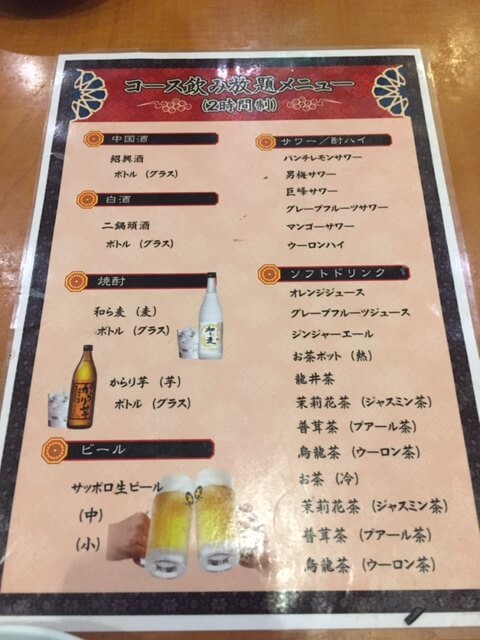 コース飲み放題メニュー
(2時間制)
中国酒
紹興酒
ボトル (グラス)
白酒
二鍋頭酒
ボトル (グラス)
焼酎
和ら麦 (麦)
ボトル (グラス)
和ら麦
からり芋 (芋)
ボトル (グラス)
からり芋
ビール
サッポロ生ビール
(中)
(小)
サワー/酎ハイ
パンチレモンサワー
男梅サワー
巨峰サワー
グレープフルーツサワー
マンゴーサワー
ウーロンハイ
ソフトドリンク
オレンジジュース
グレープフルーツジュース
ジンジャーエール
お茶ポット (熱)
龍井茶
茉莉花茶 (ジャスミン茶)
普茸茶 (プアール茶)
烏龍茶 (ウーロン茶)
お茶 (冷)
茉莉花茶 (ジャスミン茶)
普茸茶 (プアール茶)
烏龍茶 (ウーロン茶)